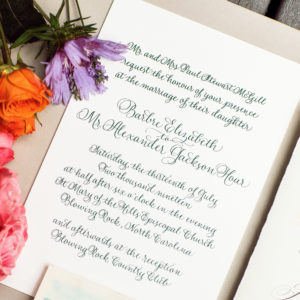 Mr and Mrs Paul Stewart McGill
request the honour of your presence
at the marriage of their daughter
Barbre Elizabeth
to
Mr Alexander Jackson Hoar
Saturday, the thirteenth of July
Two thousand nineteen
at half after six o'clock in the evening
St Mary of the Hills Episcopal Church
Blowing Rock, North Carolina
and afterwards at the reception
Blowing Rock Country Club